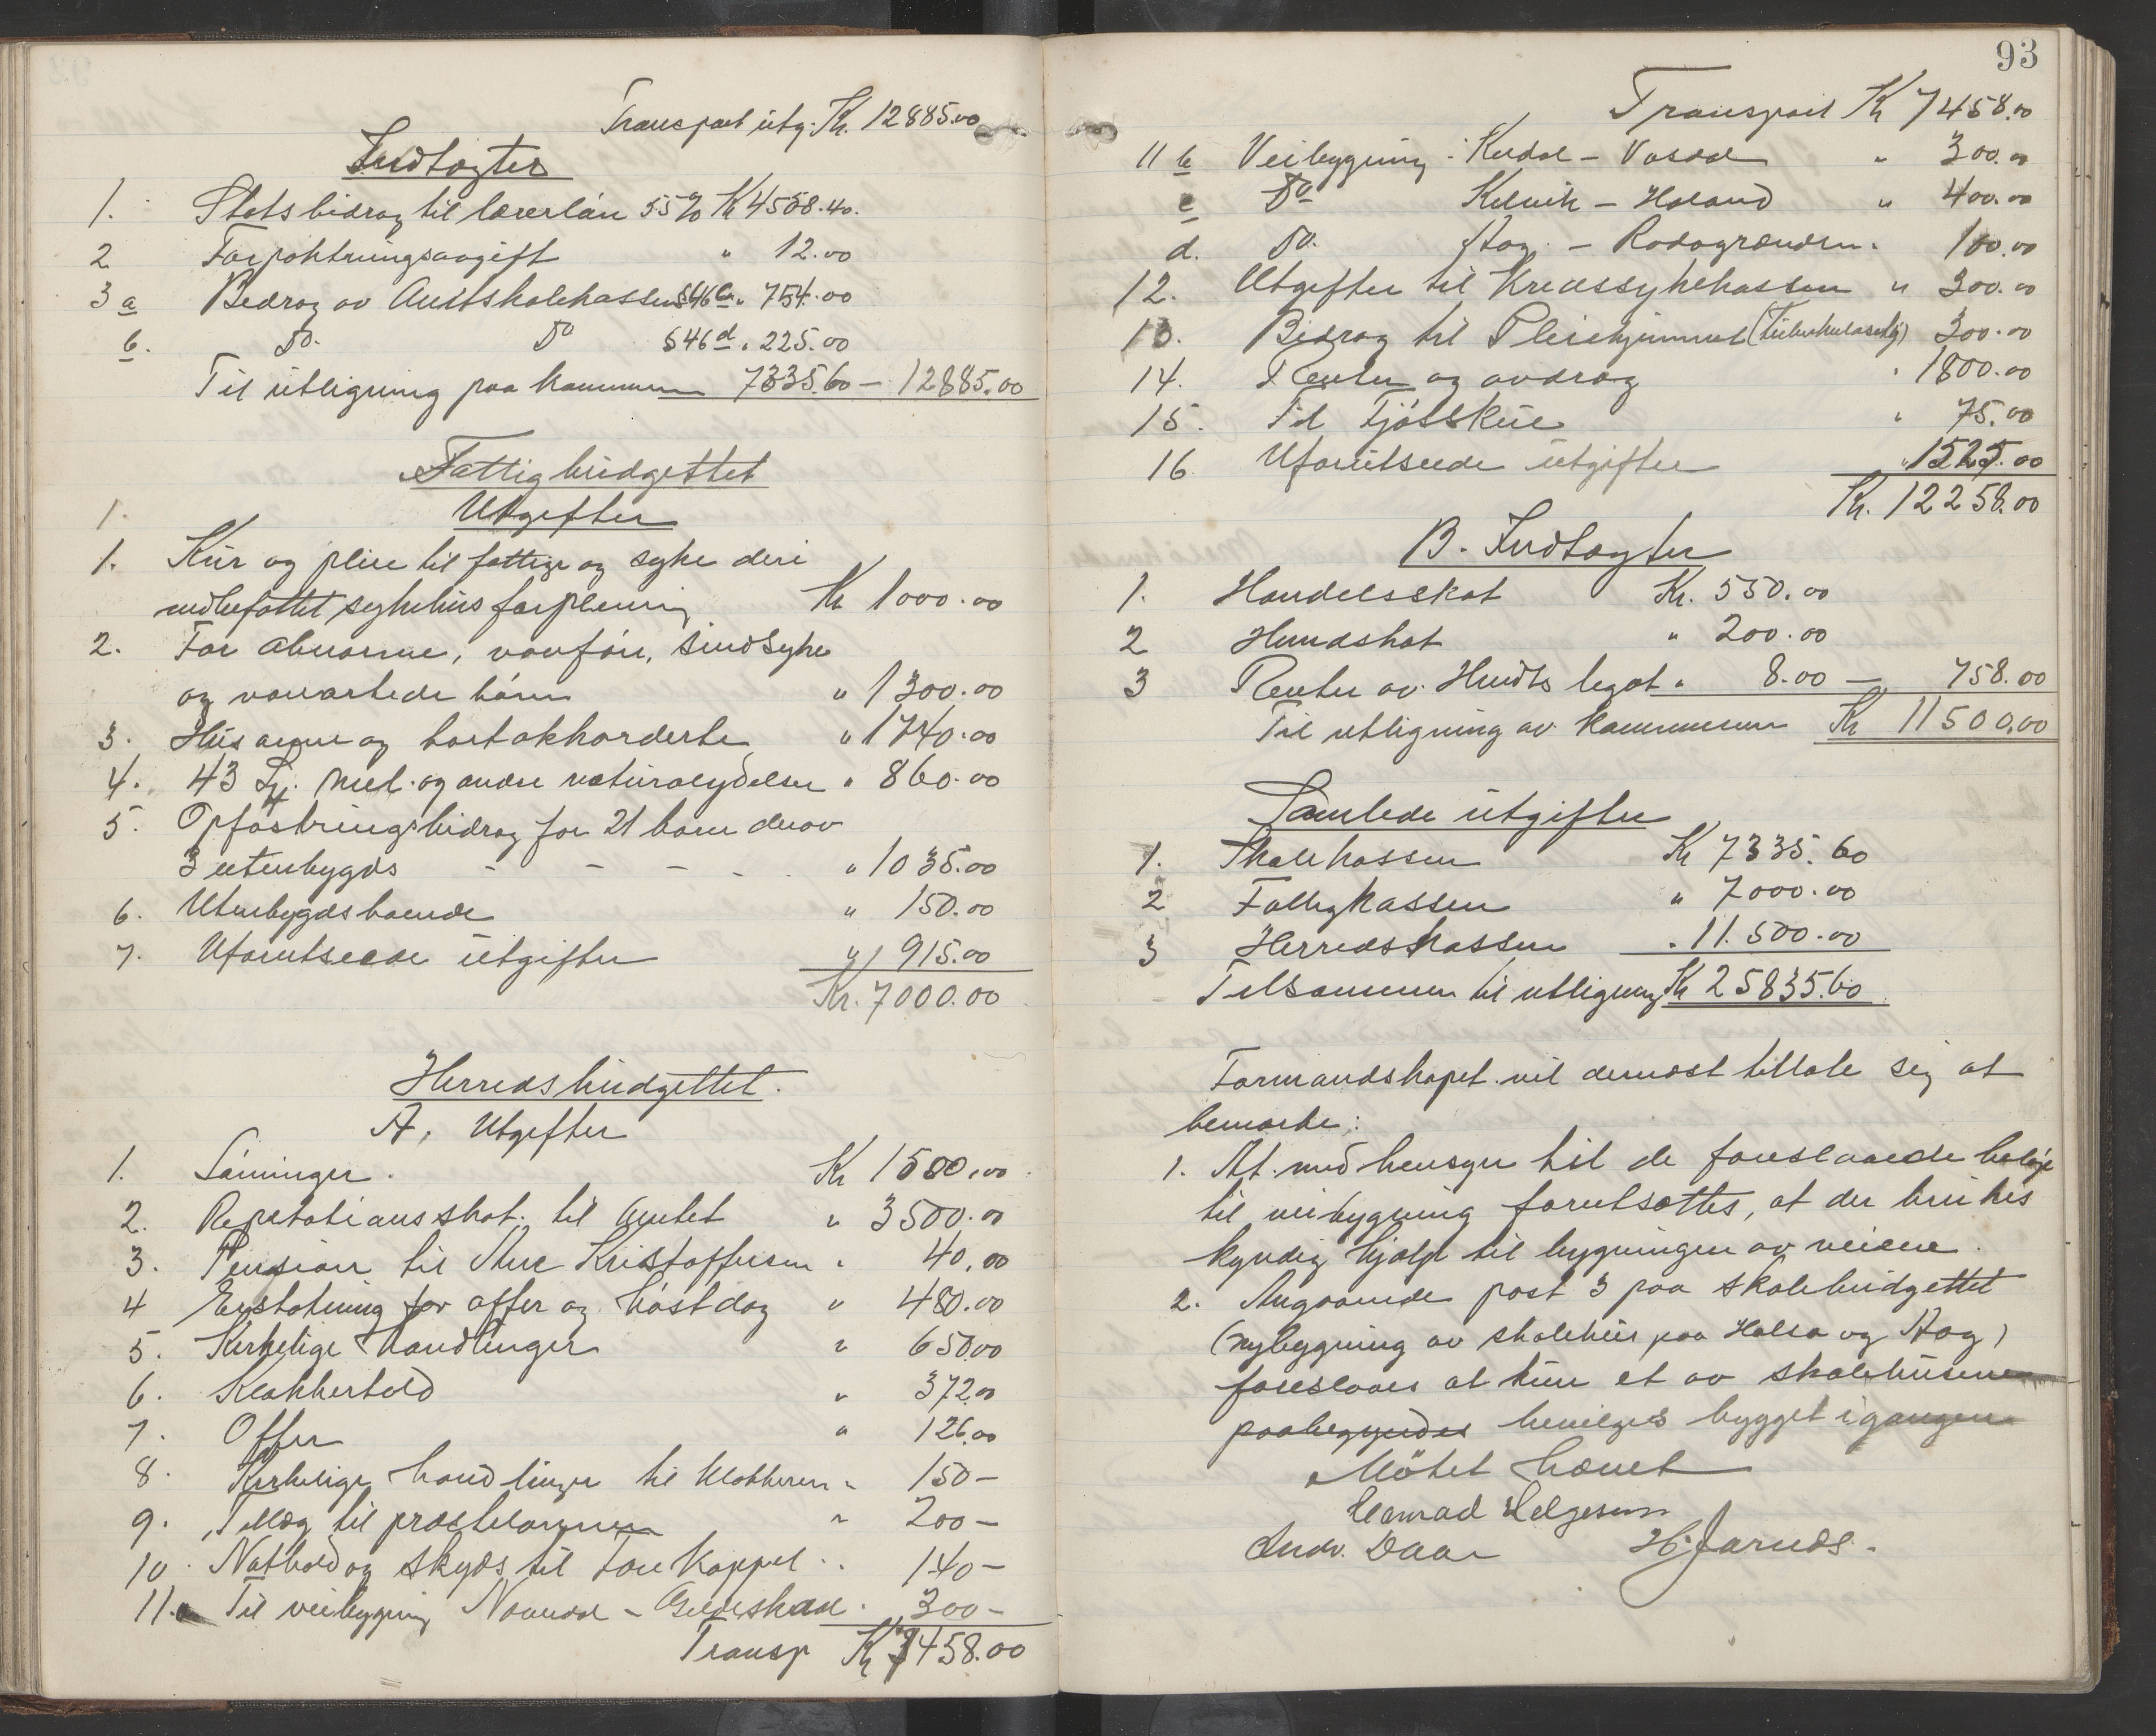 Transport utg. Kr. 12885.00
Indtægter
1. Statsbidrag til lærerlön 55% Kr 4558.40.
2 Forpaktningsavgift " 12.00
3 a Bedrag av Amtsskolekassen §46 " 754.00
b. Do. Do §46 d " 225.00
Til utligning paa kommunen 7335.60 — 12885.00
Fattigbudgettet
1. Utgifter
1. Kur og pleie til fattige og syke deri
indbefattet sykehusforpleining Kr 1000.00
2. For abnorme, vanföre, sindsyke
og vanartede börn " 1300.00
3. Husarme og bortakkorderte " 1740.00
4. 43 Sj. mel og andre naturalydelser " 860.00
5. Opfostringsbidrag for 21 barn derav
3 utenbygds - - - - " 1035.00
6. Utenbygdsboende " 150.00
7. Uforutseede utgifter " 915.00
Kr. 7000.00
Herredsbudgettet.
A. Utgifter
1. Lönninger. Kr 1500.00
2. Repartitionsskat til Amtet " 3500.00
3. Pension til Ane Kristoffersen " 40.00
4 Erstatning for offer og höstdag " 480.00
5. Kirkelige handlinger " 650.00
6. Klokkertold " 372.00
7. Offer " 126.00
8. Kirkelige handlinger til klokkeren " 150 —
9. Tillæg til præstelönnen " 200 —
10. Nathold og skyds til Fore kappel " 140 —
11.a Til veibygning — " 300 —
Transp Kr 7458.00
93
Transport Kr 7458.00
11 b Veibygning - " 300.00
c Do Kelvik - Holand " 400.00
d. Do. Aag - Rodøgrændsen " 100.00
12. Utgifter til Kredssykekassen " 300.00
13. Bidrag til Pleiehjemmet (tuberkuloseh.) 300.00
14. Renter og avdrag " 1800.00
15. Til Fjösskue " 75.00
16. Uforutseede utgifter " 1525.00
Kr. 12258.00
B. Indtægter
1. Handelsskat Kr. 550.00
2 Hundskat " 200.00
3 Renter av Hundts legat " 8.00 — 758.00
Til utligning av kommunen Kr 11500.00
Samlede utgifter
1. Skolekassen Kr 7335.60
2 Fattigkassen " 7000.00
3 Herredskassen " 11.500.00
Tilsammen til utligning Kr 25835.60
Formandskapet vil dernæst tillate sig at
bemærke:
1. At med hensyn til de foreslaaede beløp
til veibygning forutsættes, at der brukes
kyndig hjælp til bygningen av veiene.
2. Angaaende post 3 paa skolebudgettet
(nybygning av skolehus paa Halsa og Aag)
foreslaaes at kun et av skolehusene
paabegyndes bevilges bygget i gangen
Mötet hævet
Conrad Helgesen
Andr. Daae H. Jarnds.